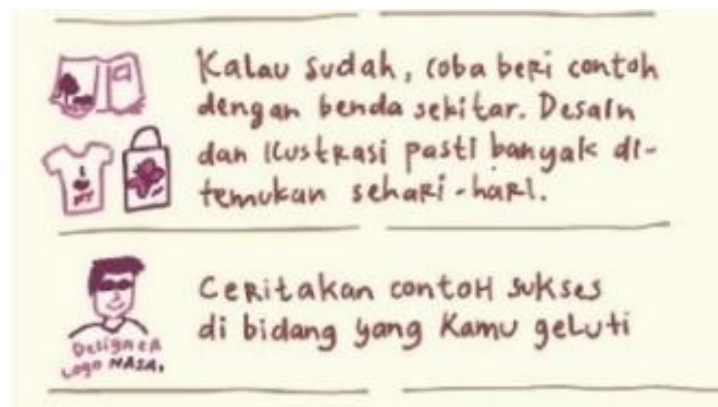 Kalau sudah, coba beri contoh
dengan benda sekitar. Desain
dan ilustrasi pasti banyak di-
temukan sehari-hari.
I ❤ NY
Ceritakan contoh sukses
di bidang yang kamu geluti
Designer
Logo NASA.